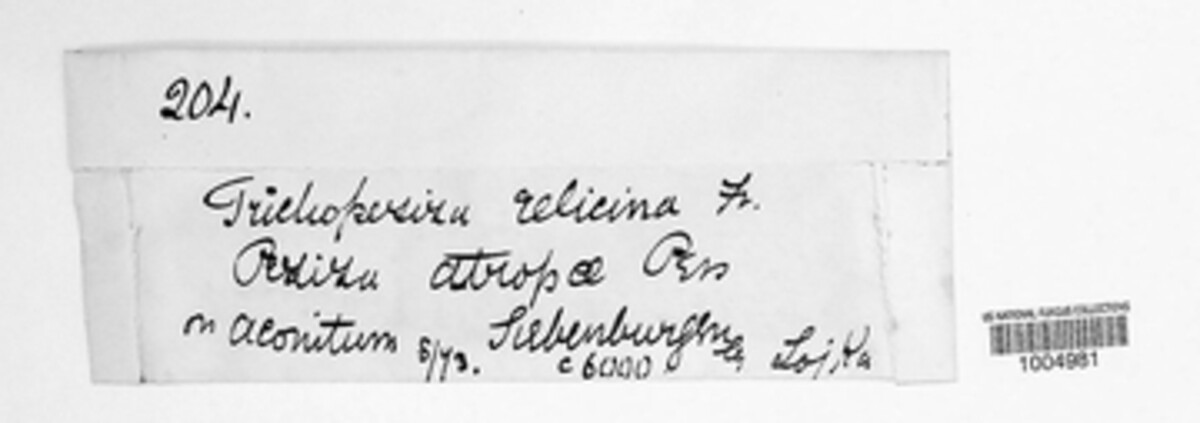 204.
Trichopeziza relicina Fr.
Peziza atropae Pers
on Aconitum 8/73. Siebenburgen Lg Lojka
c 6000
US NATIONAL FUNGUS COLLECTIONS
1004981